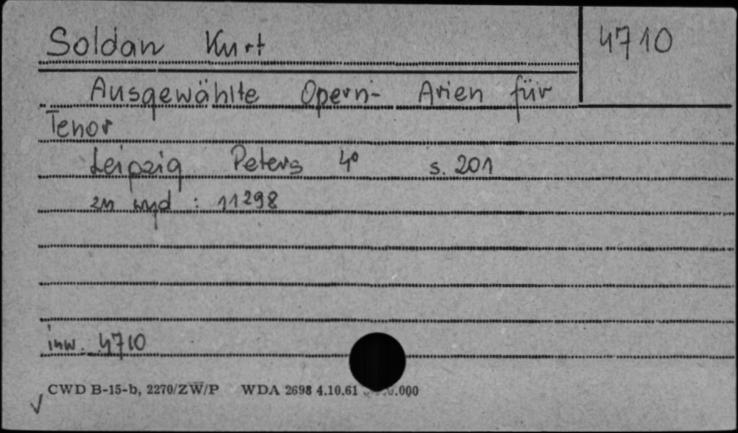 Soldan Kurt 4710
Ausgewählte Opern- Arien für
Tenor
Leipzig Peters 4° s. 201
zn wyd : 11298
inw. 4710
CWD B-15-b, 2270/ZW/P WDA 2698 4.10.61 .000